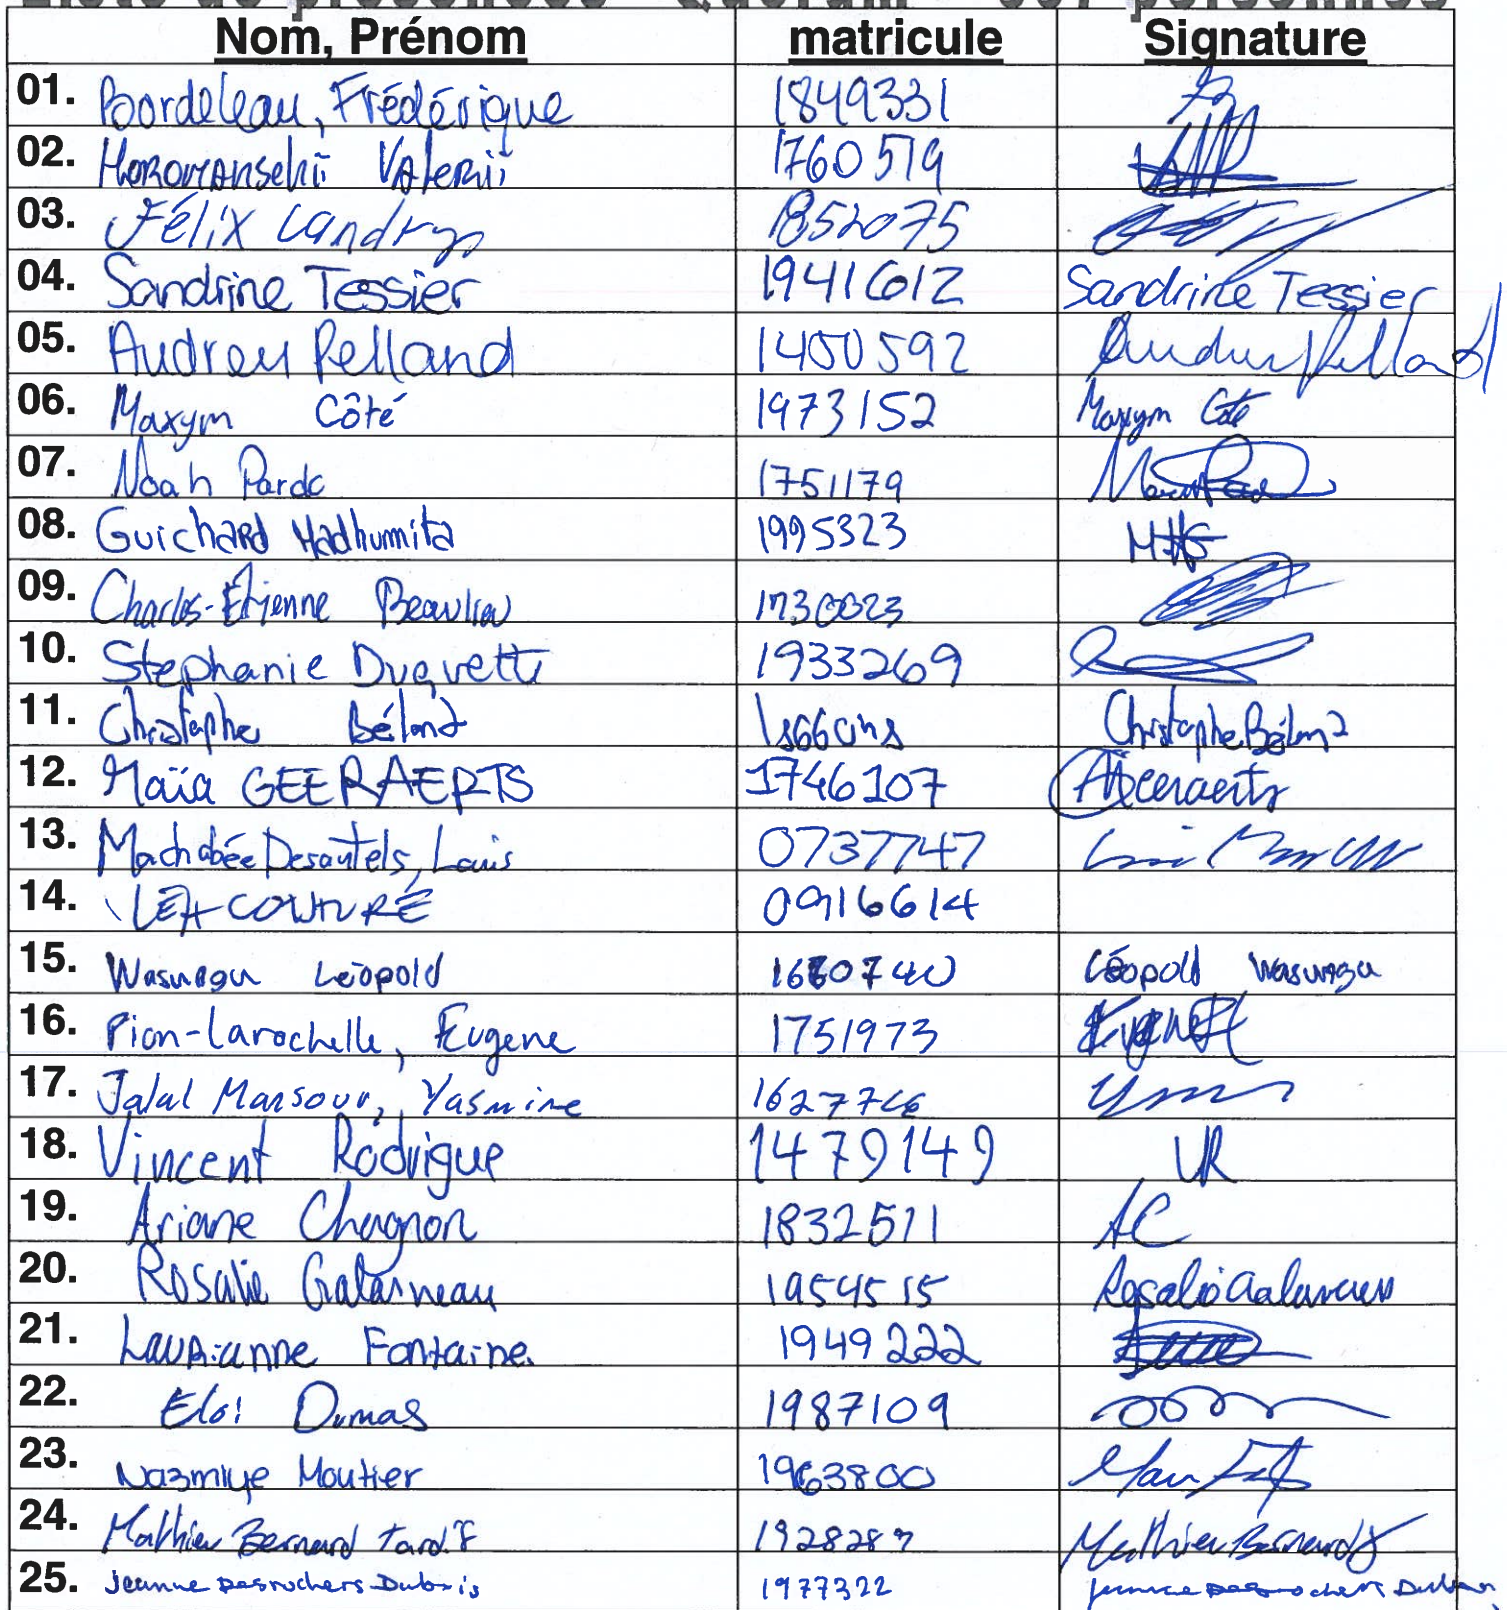 Nom, Prénom matricule Signature
01. Bordeleau, Frédérique 1849331
02. Horomanschii Valerii 1760519
03. Félix Landry 1852075
04. Sandrine Tessier 1941612 Sandrine Tessier
05. Audrey Pelland 1400592 Audrey Pelland
06. Maxym Côté 1973152 Maxym Côté
07. Noah Pardo 1751179
08. Guichard Madhumita 1995323 MHG
09. Charles-Étienne Beaulieu 1730023
10. Stephanie Duquette 1933269
11. Christophe Béland Christophe Béland
12. Maïa GEERAERTS 1746107 MGeeraerts
13. Machabée Desautels, Louis 0737747
14. LÉA COUTURE 0916614
15. Wasungu Léopold Léopold Wasungu
16. Pion-Larochelle, Eugene 1751973
17. Jalal Mansour, Yasmine 1627746
18. Vincent Rodrigue 1479149 VR
19. Ariane Chagnon 1832511 AC
20. Rosalie Galarneau 1954515 Rosalie Galarneau
21. Laurianne Fontaine 1949222
22. Eloi Dumas 1987109
23. Nazmiye Moutier 1963800
24. Mathieu Bernard Tardif 1928287 Mathieu Bernard
25. Jeanne Desrochers Dubois 1977322 Jeanne Desrochers Dubois